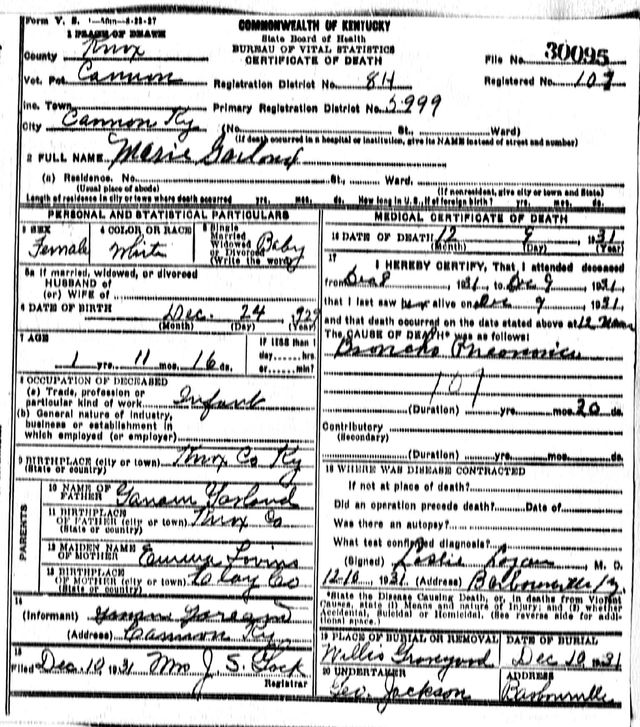 Form V. S. 1-50m-8-23-27
COMMONWEALTH OF KENTUCKY
State Board of Health
BUREAU OF VITAL STATISTICS
CERTIFICATE OF DEATH
1 PLACE OF DEATH
County Knox
File No. 30095
Vot. Pct. Cannon
Registration District No. 84
Registered No. 107
Inc. Town
Primary Registration District No. 5999
City Cannon Ky (No. St., Ward)
(If death occurred in a hospital or institution, give its NAME instead of street and number)
2 FULL NAME Marie Garland
(a) Residence. No. St., Ward.
(Usual place of abode) (If nonresident, give city or town and State)
Length of residence in city or town where death occurred yrs. mos. ds. How long in U. S., if of foreign birth? yrs. mos. ds.
PERSONAL AND STATISTICAL PARTICULARS
3 SEX Female
4 COLOR OR RACE White
5 Single Married Widowed or Divorced (Write the word) Baby
5a If married, widowed, or divorced
HUSBAND of
(or) WIFE of
6 DATE OF BIRTH Dec. 24 1929
(Month) (Day) (Year)
7 AGE
1 yrs 11 mos. 16 ds.
IF LESS than 1
day hrs.
or min?
8 OCCUPATION OF DECEASED
(a) Trade, profession or
particular kind of work Infant
(b) General nature of industry,
business or establishment in
which employed (or employer)
9 BIRTHPLACE (city or town) Knox Co Ky
(State or country)
PARENTS
10 NAME OF FATHER Garland
11 BIRTHPLACE OF FATHER (city or town) Knox Co
(State or country)
12 MAIDEN NAME OF MOTHER Emma
13 BIRTHPLACE OF MOTHER (city or town) Clay Co
(State or country)
14
(Informant)
(Address) Cannon Ky.
15
Filed Dec. 10 1931 Mrs J. S.
Registrar
MEDICAL CERTIFICATE OF DEATH
16 DATE OF DEATH 12 9 1931
(Month) (Day) (Year)
17
I HEREBY CERTIFY, That I attended deceased
from Dec 8, 1931, to Dec 9, 1931,
that I last saw her alive on Dec 9, 1931,
and that death occurred on the date stated above at 12
The CAUSE OF DEATH* was as follows:
Broncho Pneumonia
107
(Duration) yrs. mos. 20 ds.
Contributory
(Secondary)
(Duration) yrs. mos. ds.
18 WHERE WAS DISEASE CONTRACTED
If not at place of death?
Did an operation precede death? Date of
Was there an autopsy?
What test confirmed diagnosis?
(Signed) Leslie Logan, M. D.
12-10, 1931 (Address) Barbourville Ky.
*State the Disease Causing Death, or, in deaths from Violent
Causes, state (1) Means and nature of Injury; and (2) whether
Accidental, Suicidal or Homicidal. (See reverse side for addi-
tional space.)
19 PLACE OF BURIAL OR REMOVAL Willis Graveyard
DATE OF BURIAL Dec 10 1931
20 UNDERTAKER Geo. Jackson
ADDRESS Barbourville